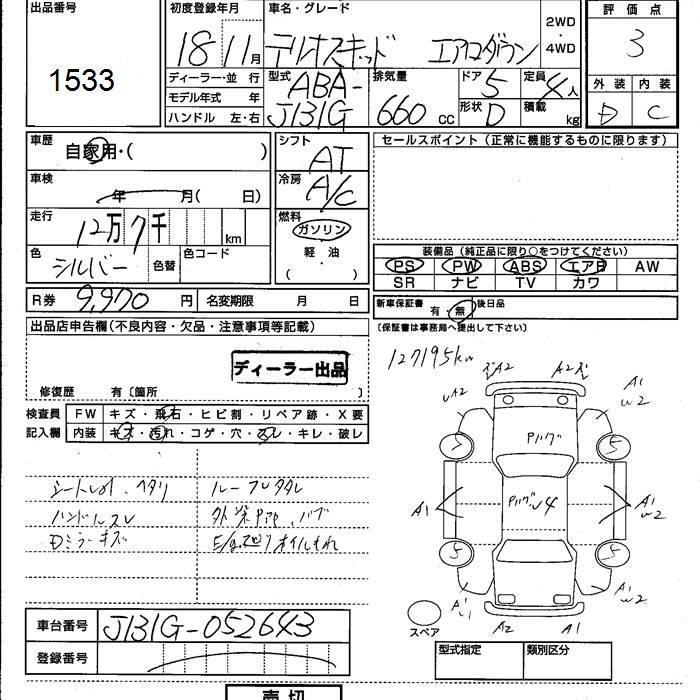 出品番号
1533
初度登録年月
18 11月
車名・グレード
テリオスキッド エアロダウン
2WD
・
4WD
評価点
3
外装 内装
D C
ディーラー・並 行
モデル年式 年
ハンドル 左・右
型式
ABA-
J131G
排気量
660 cc
ドア 5
形状 D
定員 4人
積載 kg
車歴
自家用・( )
車検
年 月( 日)
走行
12万7千 km
色
シルバー
色替
色コード
シフト
AT
冷房
A/C
燃料
ガソリン
軽・油
( ・ )
セールスポイント (正常に機能するものに限ります)
装備品 (純正品に限り○をつけてください)
PS PW ABS エアB AW
SR ナビ TV カワ
R券 9,970 円
名変期限 月 日
新車保証書 有・無
後日品
(保証書は事務局へ提出して下さい)
出品店申告欄(不良内容・欠品・注意事項等記載)
ディーラー出品
修復歴 有〔箇所 〕
検査員
記入欄
FW キズ・飛石・ヒビ割・リペア跡・X要
内装 キズ・汚れ・コゲ・穴・スレ・キレ・破レ
127195km
シートヨゴレ、ヘタリ ルーフレタタレ
ハンドルスレ
Dミラーキズ E/g廻りオイルもれ
ズA2 A2ズ
A2 A1
u2
Pハゲ
5 5
A1 Pハゲ u4 A1
u2
5 5
A1 A1
u2
A2 A1
スペア
車台番号 J131G-052643
登録番号
型式指定 類別区分
売切